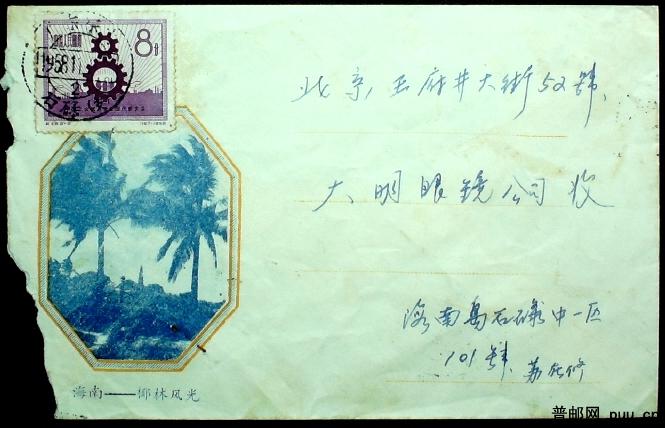 8分
1958.1
北京,王府井大街52號
大明眼镜公司收
海南島石碌中一区
101號
海南——椰林风光
普邮网 puu.cn